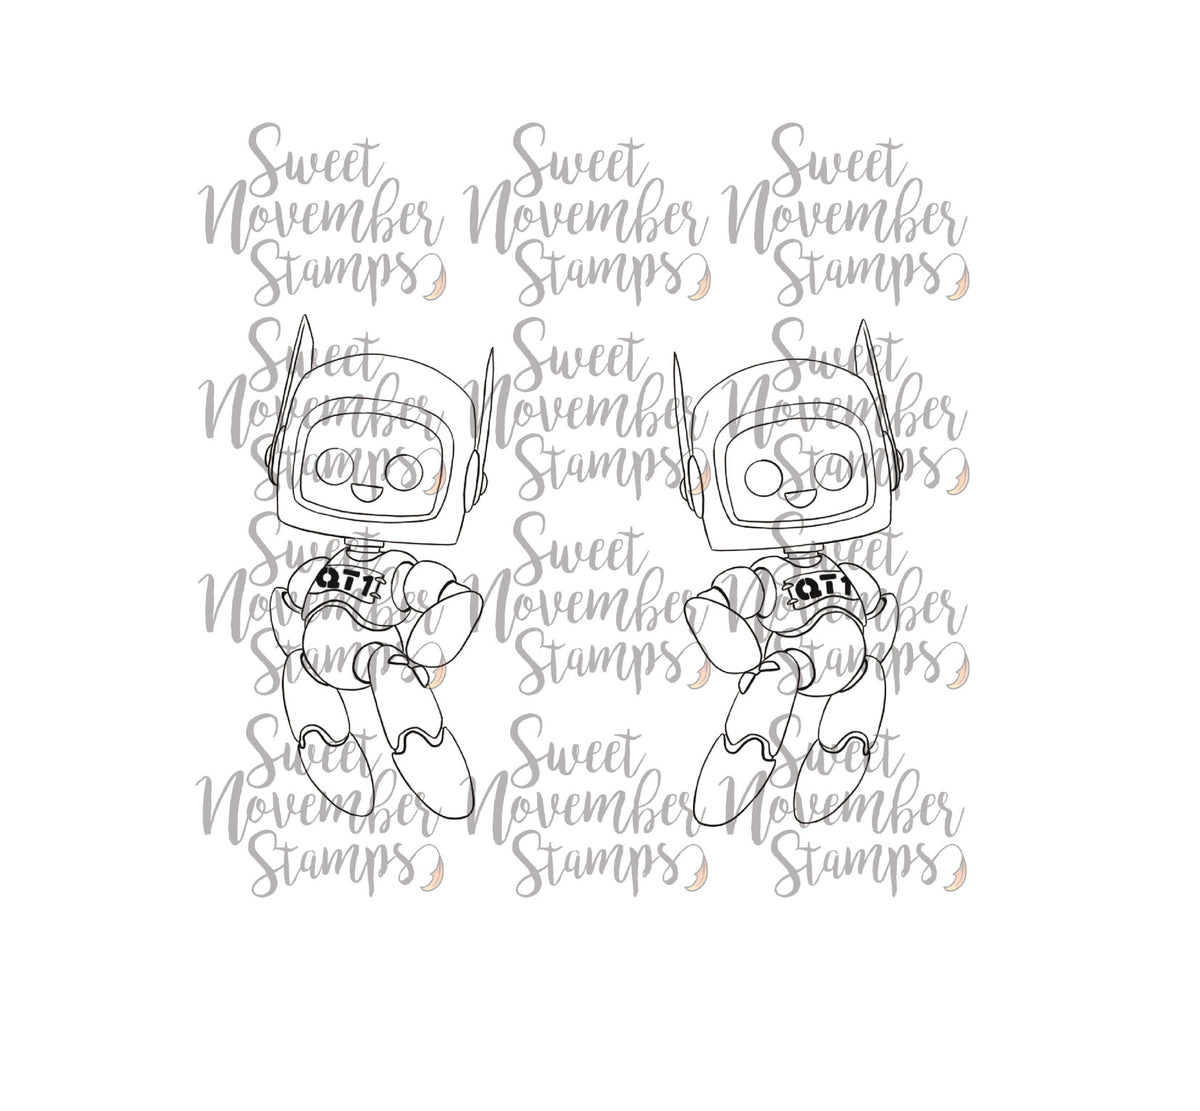 Sweet
November
Stamps
Sweet
November
Stamps
Sweet
November
Stamps
Sweet
November
Stamps
Sweet
November
Stamps
Sweet
November
Stamps
Sweet
November
Stamps
Sweet
November
Stamps
Sweet
November
Stamps
QT1
QT1
Sweet
November
Stamps
Sweet
November
Stamps
Sweet
November
Stamps